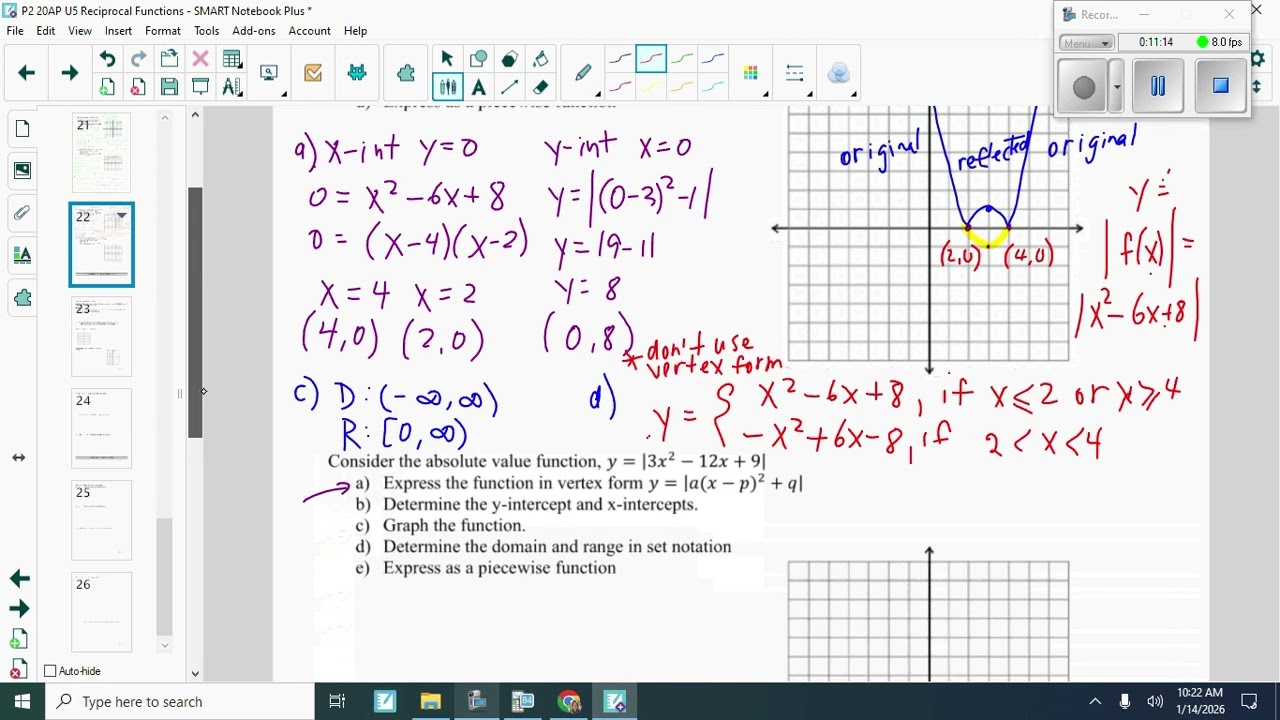 P2 20AP U5 Reciprocal Functions - SMART Notebook Plus *
Recor...
File Edit View Insert Format Tools Add-ons Account Help
Menu
0:11:14 8.0 fps
21
22
23
24
25
26
a) x-int y=0 y-int x=0
0 = x² -6x+8 y=|(0-3)²-1|
0 = (x-4)(x-2) y=|9-1|
x=4 x=2 y=8
(4,0) (2,0) (0,8)
original reflected original
(2,0) (4,0)
y =
|f(x)| =
|x²-6x+8|
* don't use
vertex form
c) D: (-∞,∞) d)
R: [0,∞)
y = { x²-6x+8, if x≤2 or x≥4
-x²+6x-8, if 2<x<4
Consider the absolute value function, y = |3x² − 12x + 9|
a) Express the function in vertex form y = |a(x − p)² + q|
b) Determine the y-intercept and x-intercepts.
c) Graph the function.
d) Determine the domain and range in set notation
e) Express as a piecewise function
Auto-hide
Type here to search
10:22 AM
1/14/2026